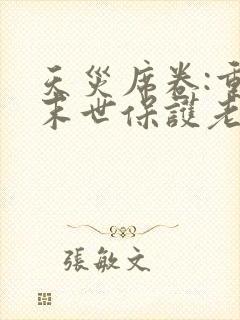 天災席卷:重
末世保護老
張敏文